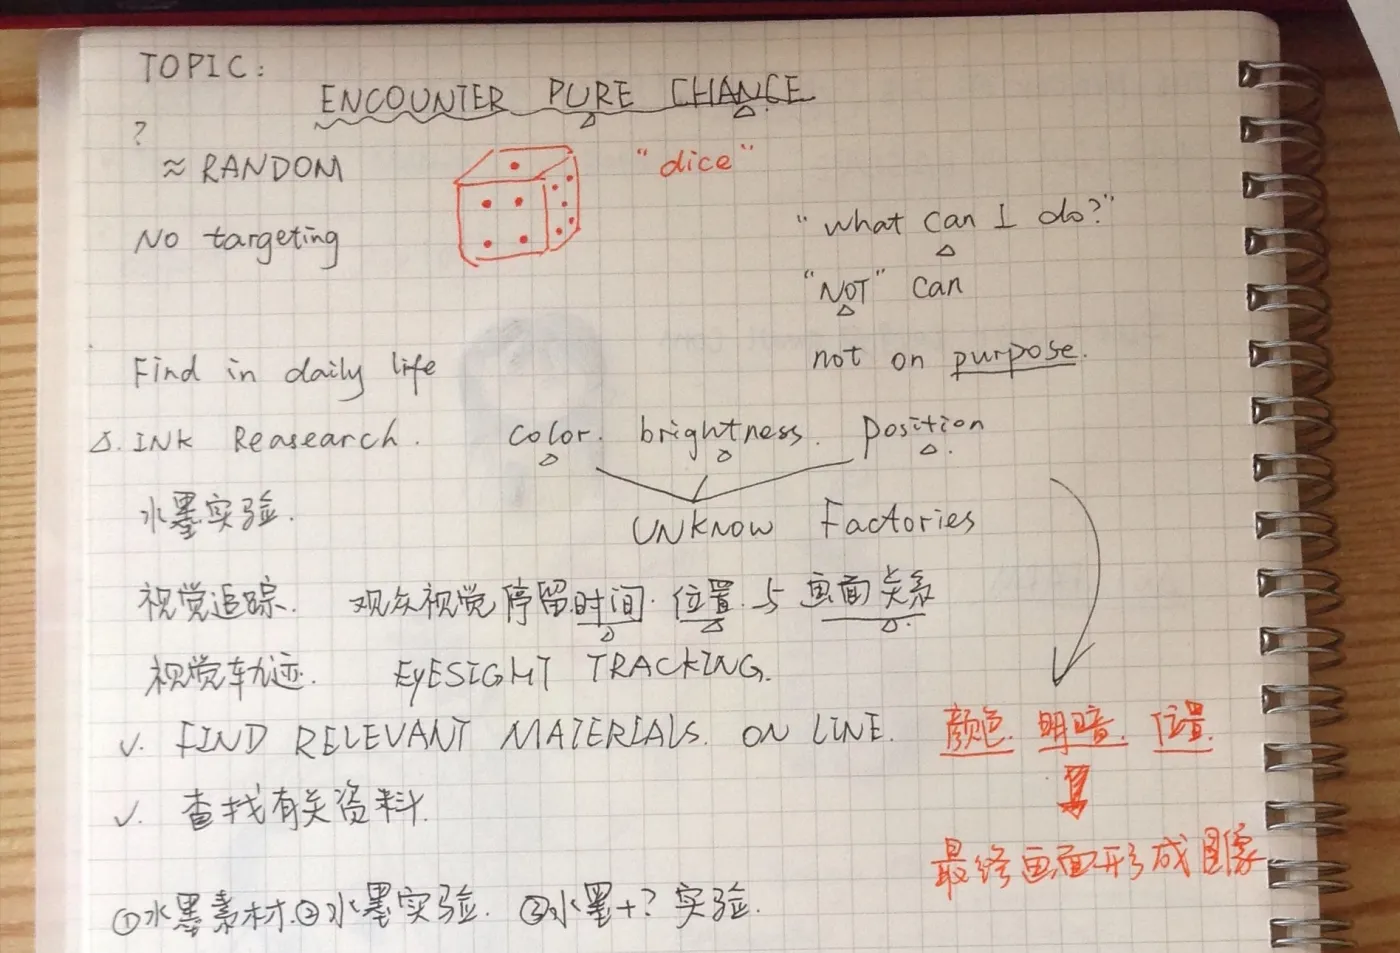 TOPIC:
ENCOUNTER PURE CHANCE
?
≈ RANDOM
"dice"
No targeting
"what can I do?"
"NOT" can
not on purpose.
Find in daily life
△. INK Reasearch. color. brightness. position.
水墨实验.
UNKNOW Factories
视觉追踪. 观众视觉停留时间. 位置. 与画面关系
视觉轨迹. EyESIGHT TRACKING.
✓. FIND RELEVANT MATERIALS. ON LINE.
颜色. 明暗. 位置.
✓. 查找有关资料.
最终画面形成图像
①水墨素材.②水墨实验. ③水墨+? 实验.